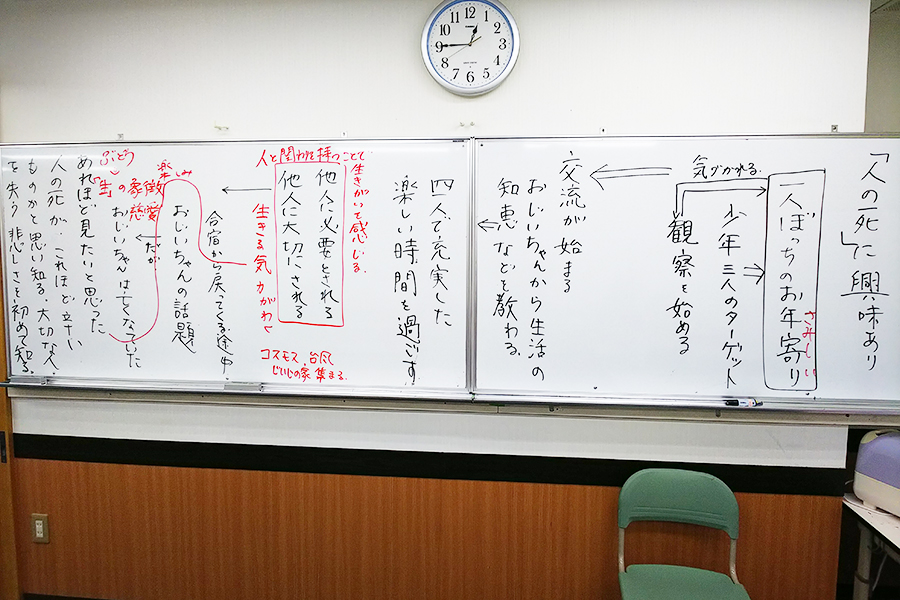 「人の死」に興味あり
一人ぼっちのお年寄り
さみしい
少年三人のターゲット
気づかれる
観察を始める
交流が始まる
おじいちゃんから生活の
知恵などを教わる
四人で充実した
楽しい時間を過ごす
人と関わりを持つことで
生きがいを感じる。
他人に必要とされる
他人に大切にされる
生きる気力がわく
コスモス、台風
じいじの家集まる。
合宿から戻ってくる途中
おじいちゃんの話題
楽しみ
だが
おじいちゃんは亡くなっていた
ぶどう
「生」の象徴
慈愛
あれほど見たいと思った
人の死が、これほど辛い
ものかと思い知る。大切な人
を失う悲しさを初めて知る。
12
1
2
3
4
5
6
7
8
9
10
11